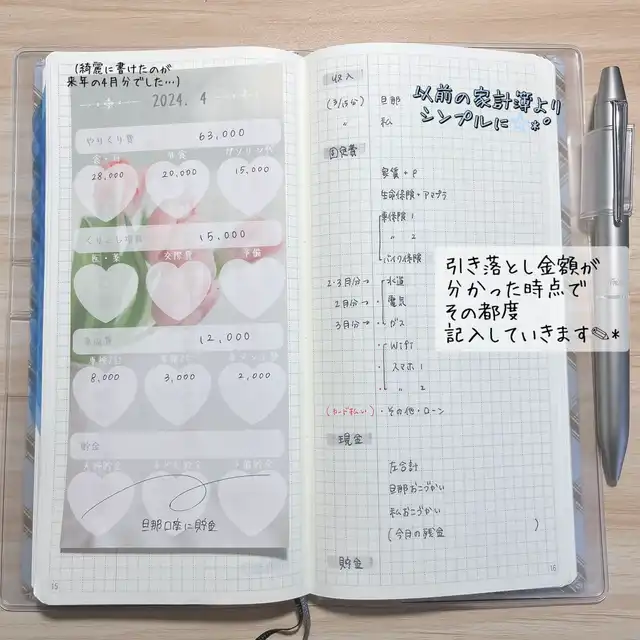 (綺麗に書けたのが
来年の4月分でした…)
2024. 4
やりくり費 63,000
食・日 外食 ガソリン代
28,000 20,000 15,000
15,000
医・薬 交際費 予備
12,000
8,000 3,000 2,000
貯金
旦那口座に貯金
15
収入
以前の家計簿より
シンプルに
(3/15分) 旦那
〃 私
固定費
家賃+P
生命保険+アマプラ
車保険 1
〃 2
バイク保険
引き落とし金額が
分かった時点で
その都度
記入していきます
2・3月分→ 水道
2月分→ 電気
3月分→ ガス
WiFi
スマホ 1
〃 2
(カード払い) ・その他・ローン
現金
左合計
旦那おこづかい
私おこづかい
(今月の残金 )
貯金
16